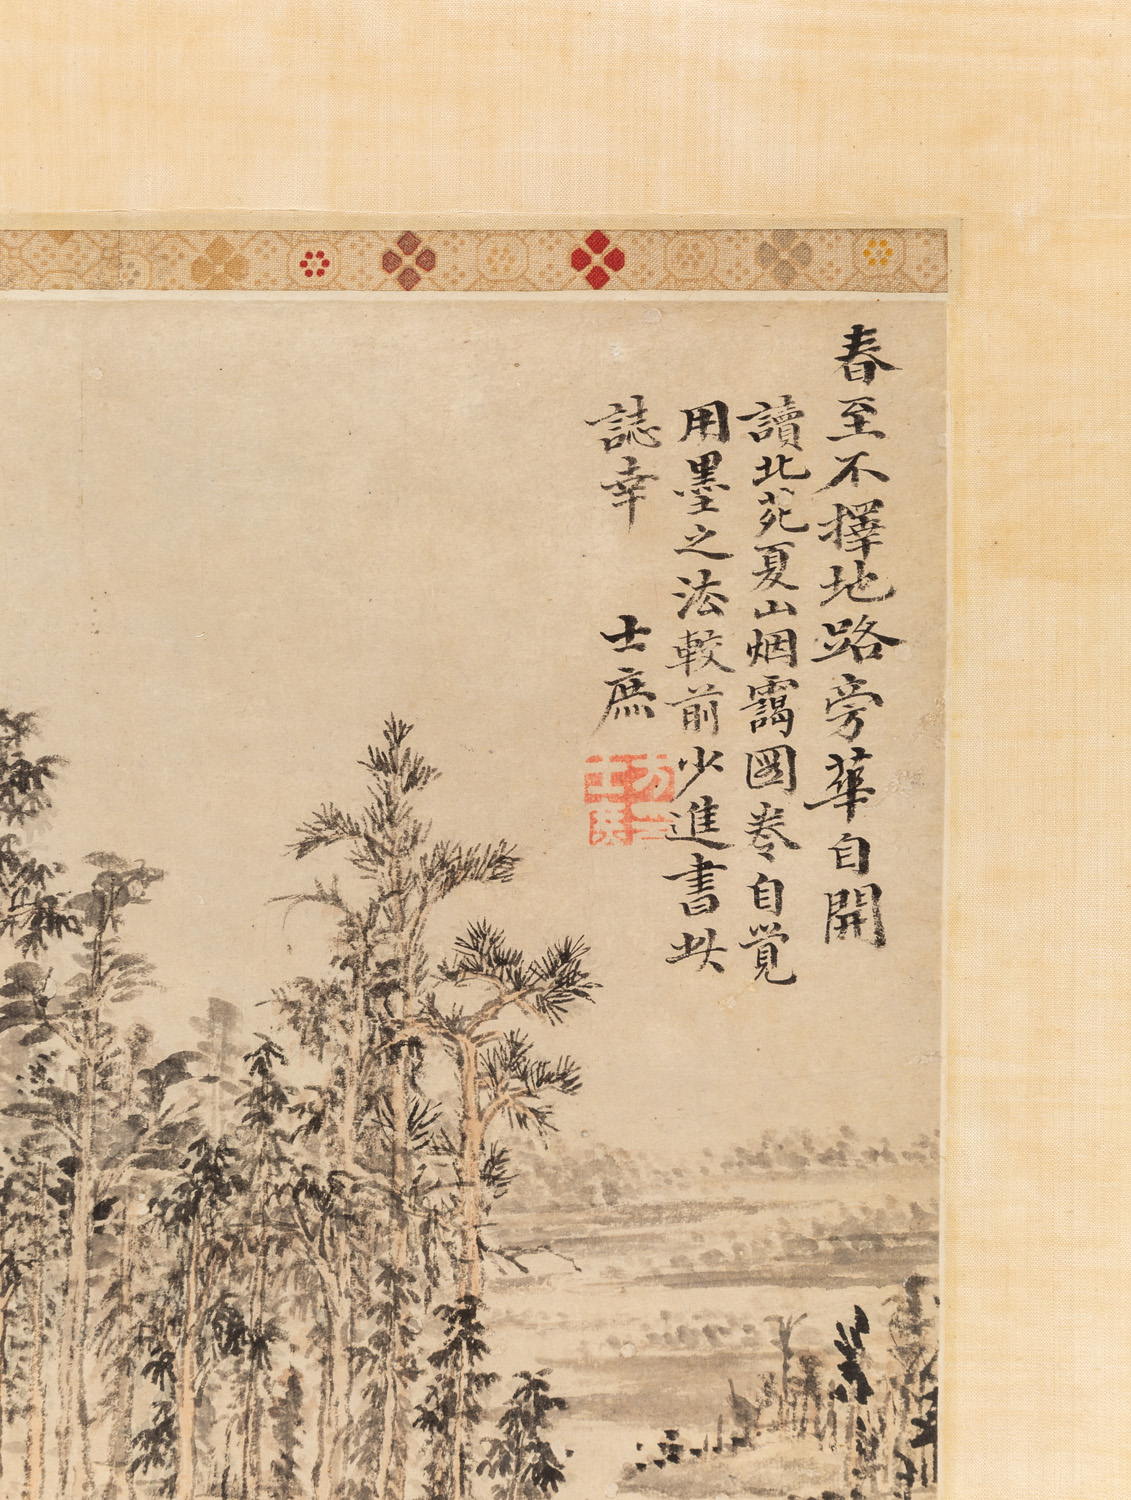 春至不擇地路旁華自開
讀北苑夏山烟靄圖卷自覺
用墨之法較前少進書此
誌幸 士庶
方士庶印